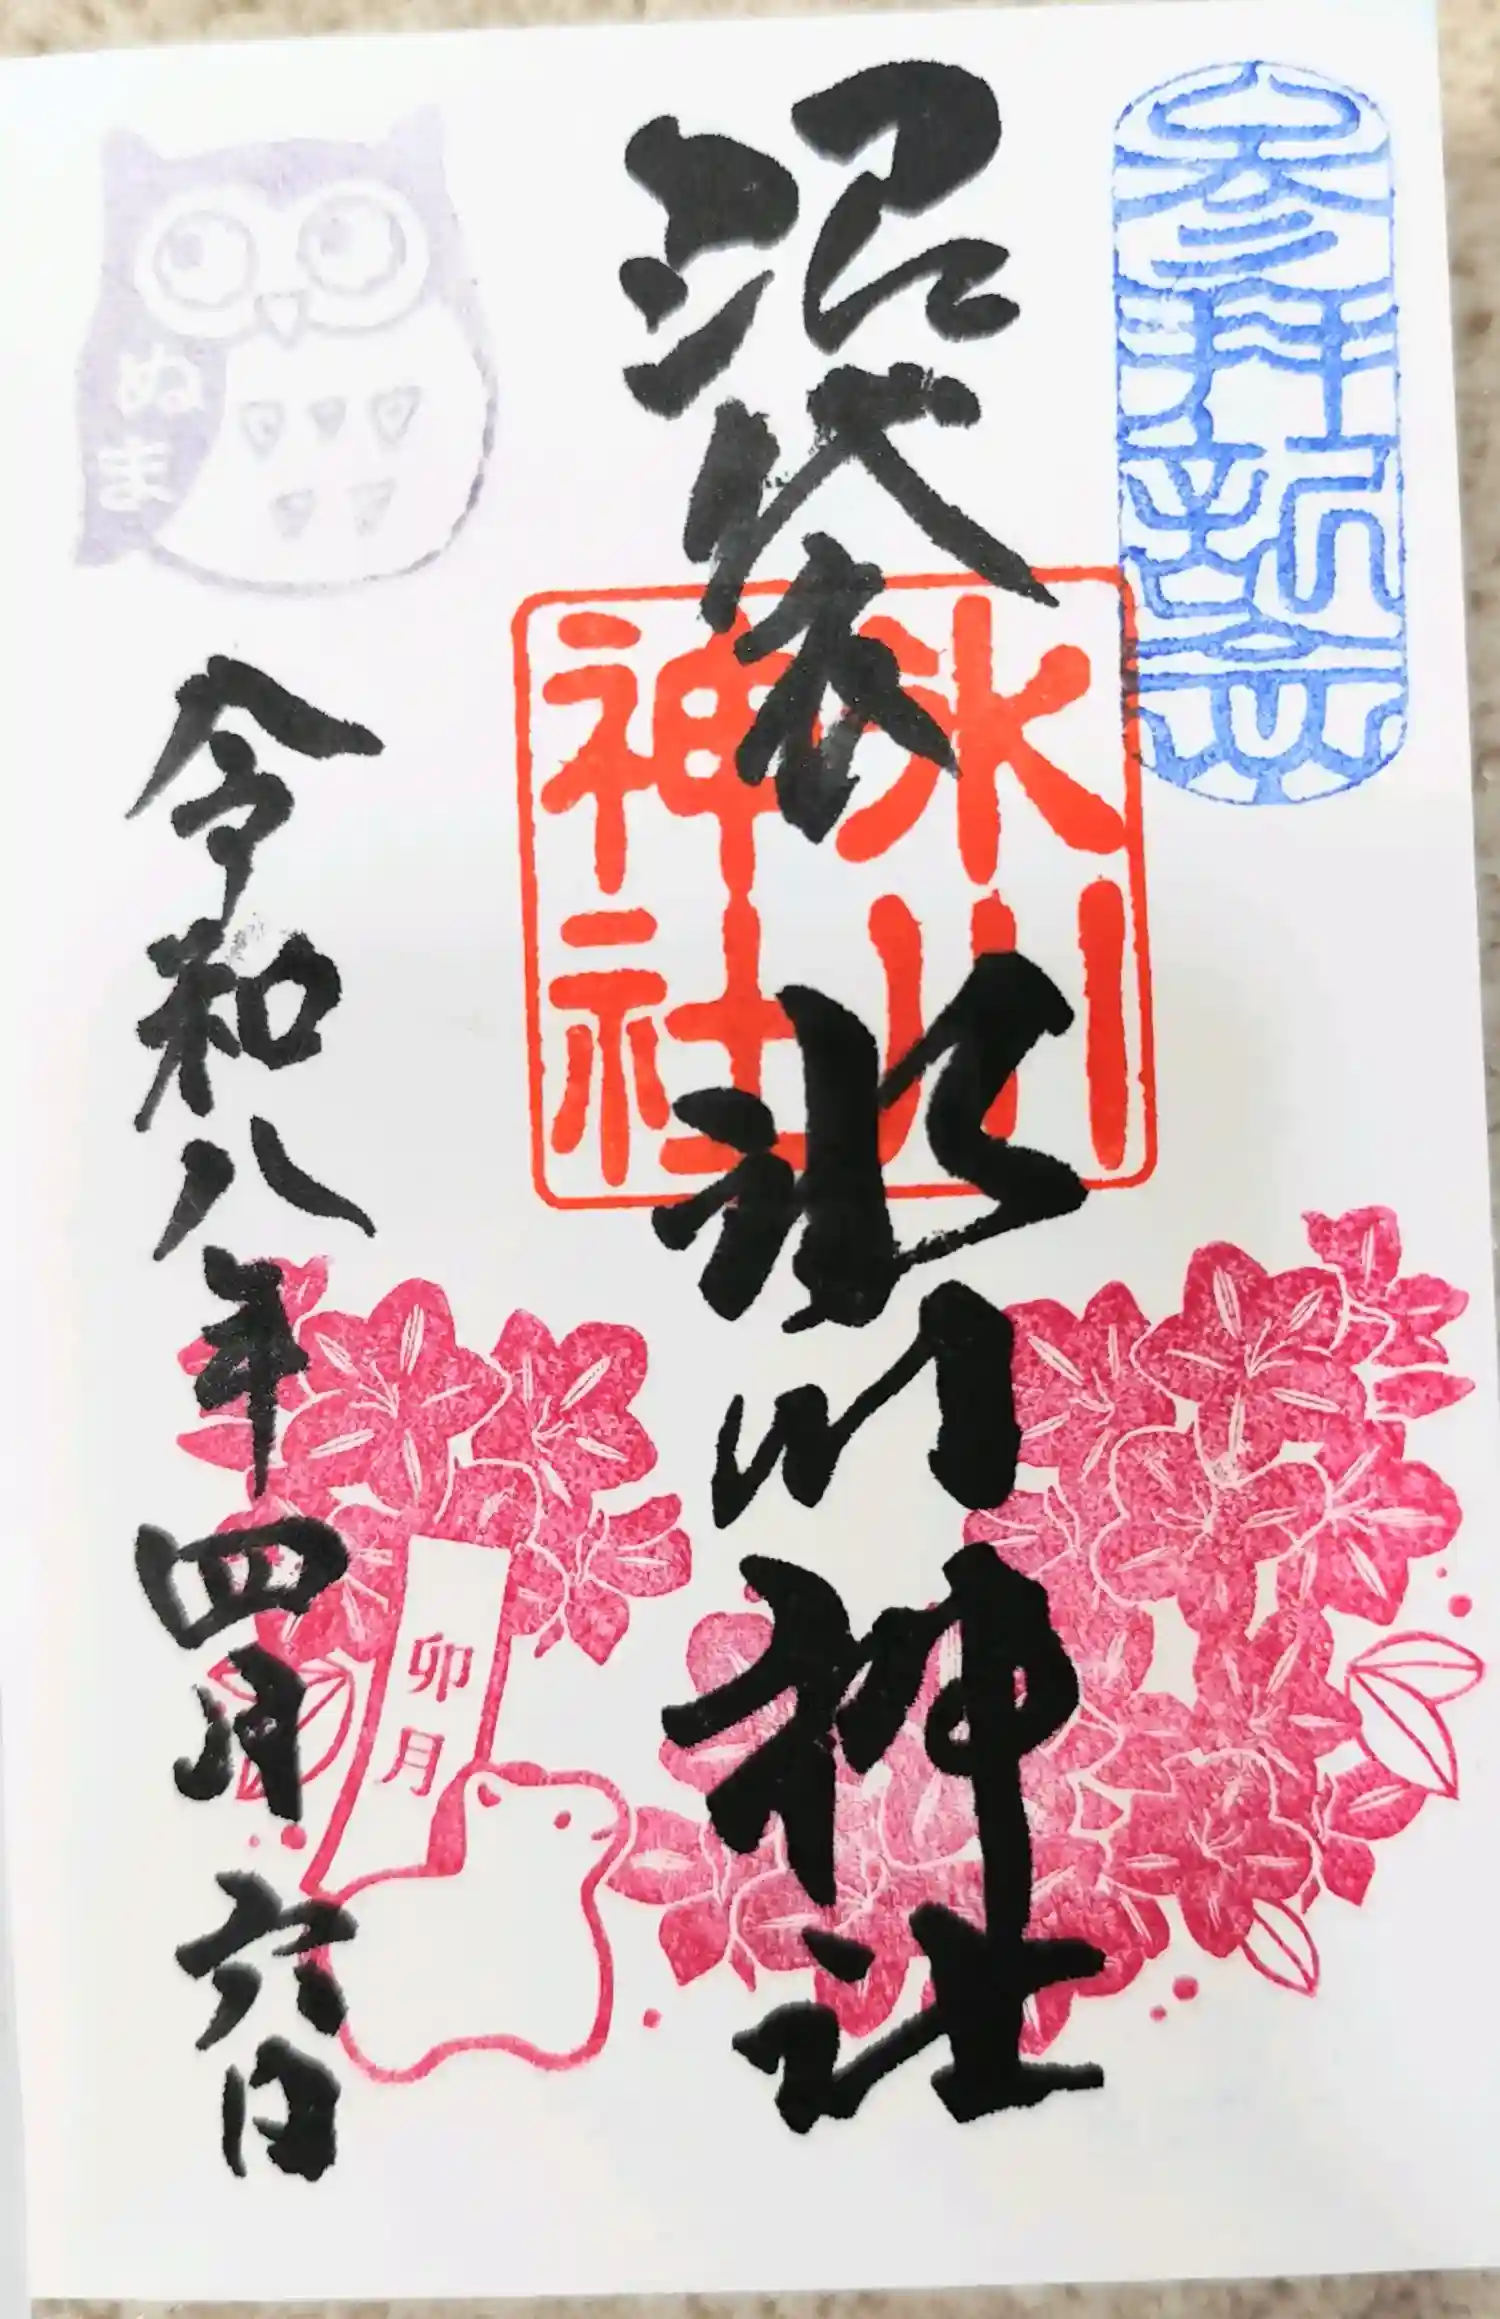 参拝記念
沼袋氷川神社
氷川
神社
ぬま
令和八年四月六日
卯月